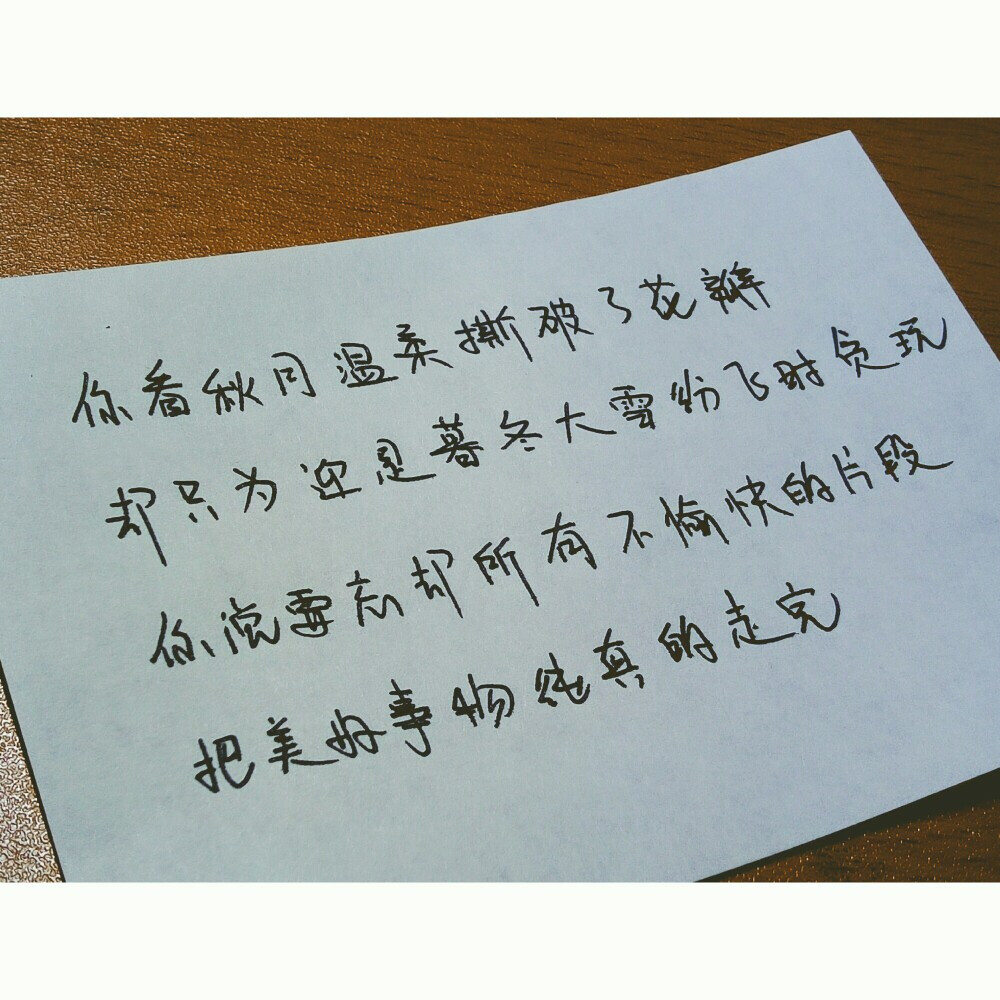 你看秋月温柔撕破了花瓣
却只为迎是暮冬大雪纷飞时贪玩
你说要忘却所有不愉快的片段
把美好事物纯真的走完